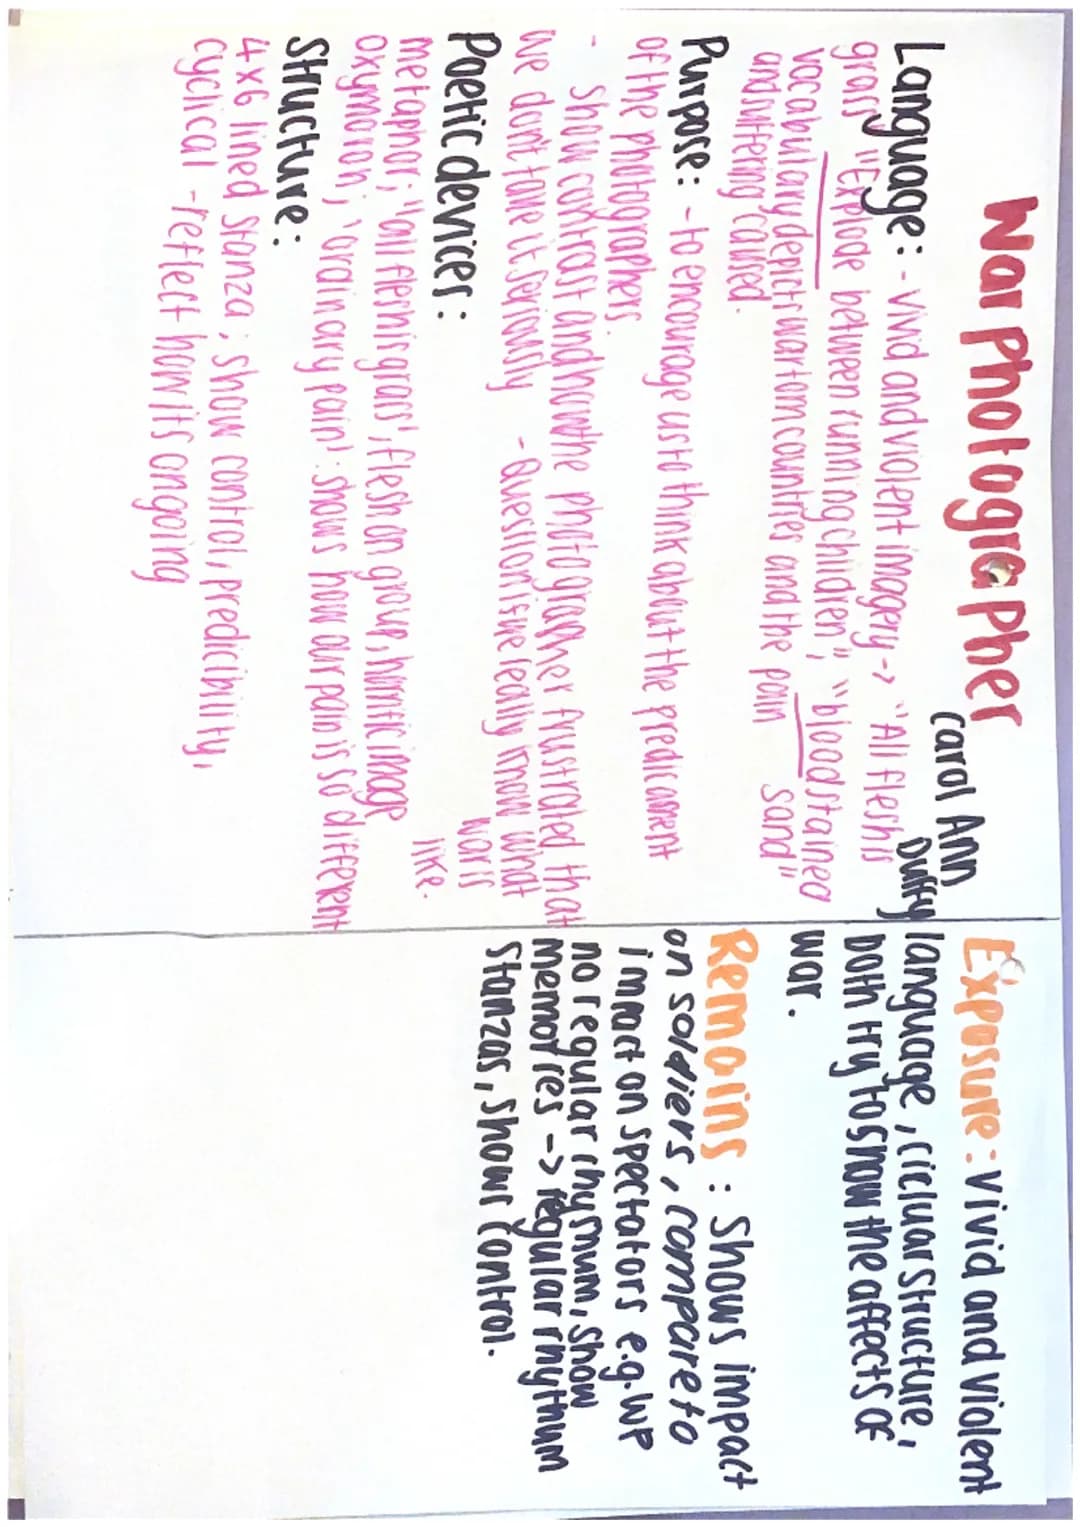 War Photographer
Carol Ann
Duffy
Language: - vivid and violent imagery -> "All flesh is
grass" "Explode between running children", "bloodstained
vocabulary depicts war torn countries and the pain sand"
and suffering caused.
Purpose: - to encourage us to think about the predicament
of the photographers.
- Show contrast and how the photographer frustrated that
we don't take it seriously - Question if we really know what
war is
like.
Poetic devices:
metaphor; 'all flesh is grass', flesh on group, horrific image
oxymoron; 'ordinary pain': shows how our pain is so different
Structure:
4x6 lined stanza; show control, predicibility,
cyclical - reflect how its ongoing
Exposure: vivid and violent
language, cicluar structure,
both try to show the affects of
war.
Remains: Shows impact
on soldiers, compare to
impact on spectators e.g. WP
no regular rhymum, show
memories -> regular rhythum
Stanzas, shows control.